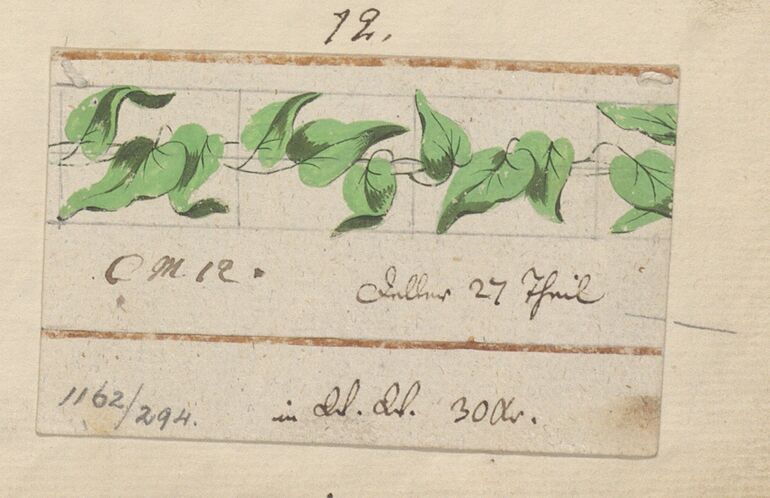 12.
C M 12.
Teller 27 Theil
1162/294.
in Kl. Kl. 30 Kr.